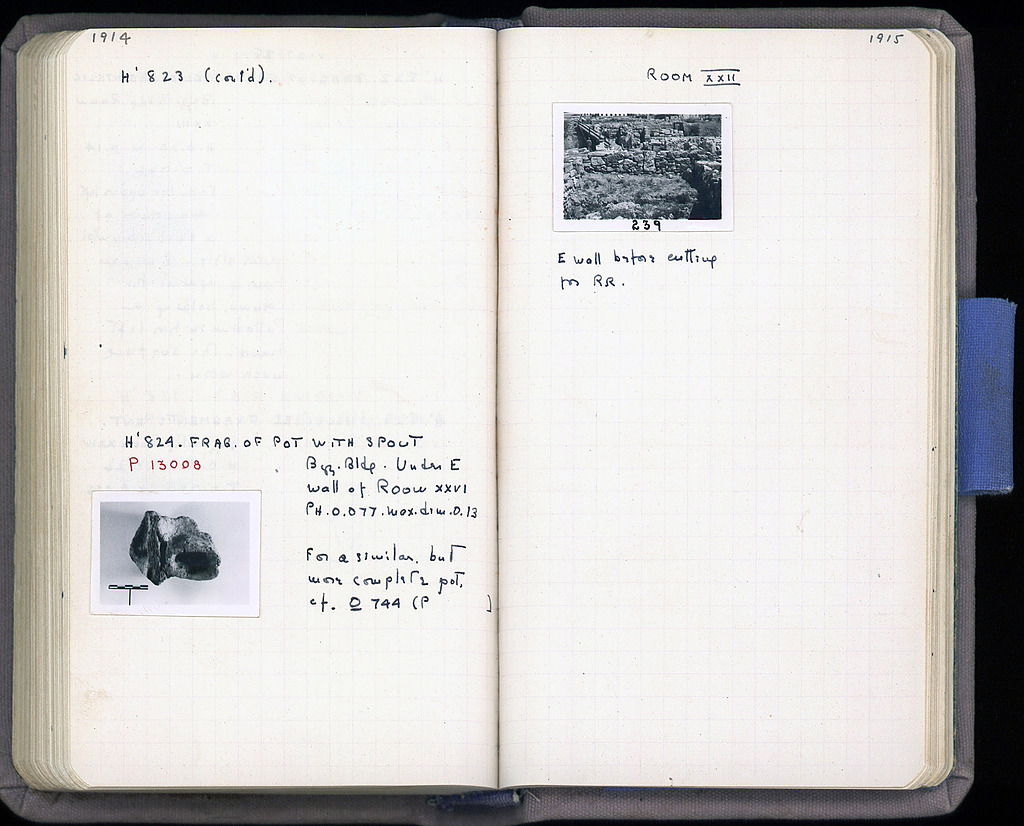 1914
H' 823 (cont'd).
H' 824. FRAG. OF POT WITH SPOUT
P 13008
Byz. Bldg. Under E
wall of Room XXVI
PH. 0.077. max. dim. 0.13
For a similar, but
more complete pot,
cf. O 744 (P )
1915
ROOM XXII
239
E wall before cutting
for RR.